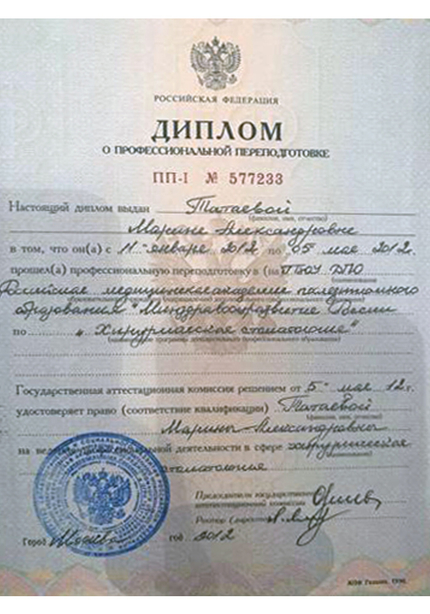 РОССИЙСКАЯ ФЕДЕРАЦИЯ
ДИПЛОМ
О ПРОФЕССИОНАЛЬНОЙ ПЕРЕПОДГОТОВКЕ
ПП-I № 577233
Настоящий диплом выдан Татаевой
(фамилия, имя, отчество)
Марине Александровне
в том, что он(а) с 11 января 2012 по 05 мая 2012.
прошел(а) профессиональную переподготовку в (на) ГБОУ ДПО
Российская медицинская академия последипломного
образования "Минздравсоцразвития России
по „Хирургическая стоматология"
(наименование программы дополнительного профессионального образования)
Государственная аттестационная комиссия решением от 5 мая 12г.
удостоверяет право (соответствие квалификации) Татаевой
(фамилия, имя, отчество)
Марины Александровны
на ведение профессиональной деятельности в сфере хирургическая
стоматология
Председатель государственной
аттестационной комиссии
Ректор (директор)
Город Москва год 2012